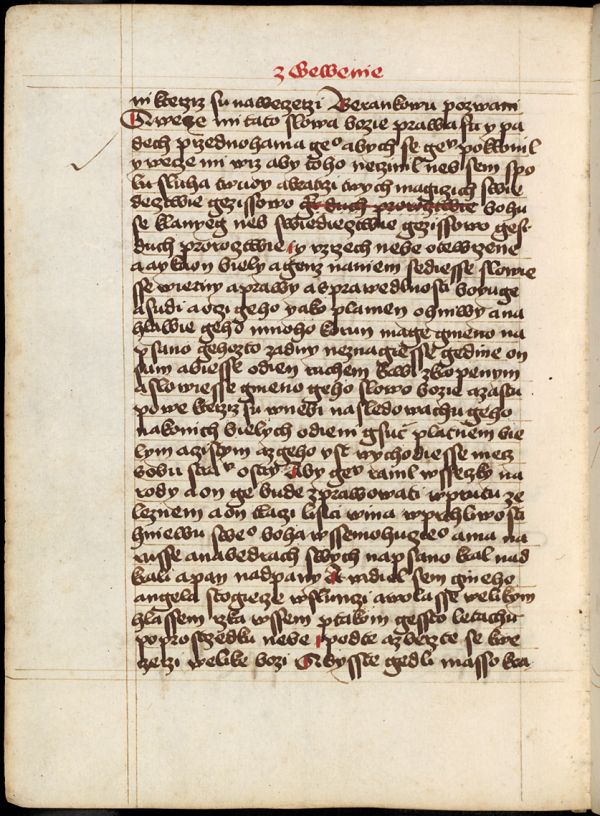 z Gewenie
ni kterziz su na weczerzi Berankowu pozwani
A wecze mi tato slowa bozie prawa su y pa
dech przed nohama geo abych se gey poklonil
y wecze mi wiz aby toho neczinil neb sem spo
lu sluha twuoy a bratrzi twych magiczich swie
decztwie gezissowo bohu
se klanyeg neb swiedecztwie gezissowo gest
duch proroztwie y uzrzech nebe otewrzene
a ay kuon biely a genz na niem sediesse slowie
sse wierny a prawy a s prawedlnosti boyuge
a sudi a oczi geho yako plamen ohniwy a na
hlawie geho mnoho korun mage gmeno na
psano gehozto zadny neznagiesse gedine on
sam a biesse odien ruchem krwi zkropenym
a slowiesse gmeno geho slowo bozie a zastu
powe kterziz su w nebi nasledowachu geho
na konich bielych odieni gsuc platnem bie
lym a czistym a z geho ust wychodiesse mecz
s obu stranu ostry Aby gey ranil wsseczky na
rody a on ge bude zprawowati w prutu ze
leznem a on tlaczi lisici wina w prchliwosti
hniewu sweo boha wssemohuczieo a ma na
russe a na bedrach swych napsano kral nad
krali a pan nad pany A widiel sem gineho
angela stogiecze w slunczi a wolasse welikym
hlassem rzka wssem ptakom gessto letachu
po prostrzedku nebe podte a zberzte se k we
czerzi welike bozi Abysste gedli masso kra